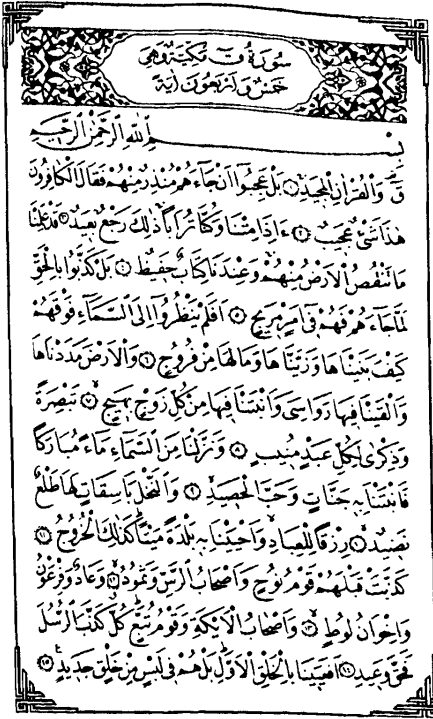 سُورَةُ قٓ مَكِّيَّةٌ وَهِيَ
خَمْسٌ وَاَرْبَعُونَ اٰيَةً
بِسْمِ اللّٰهِ الرَّحْمٰنِ الرَّحِيمِ
قٓ وَالْقُرْاٰنِ الْمَجِيدِۚ ﴿١﴾ بَلْ عَجِبُٓوا اَنْ جَٓاءَهُمْ مُنْذِرٌ مِنْهُمْ فَقَالَ الْكَافِرُونَ
هٰذَا شَيْءٌ عَجِيبٌۚ ﴿٢﴾ ءَاِذَا مِتْنَا وَكُنَّا تُرَابًاۚ ذٰلِكَ رَجْعٌ بَعِيدٌ ﴿٣﴾ قَدْ عَلِمْنَا
مَا تَنْقُصُ الْاَرْضُ مِنْهُمْۚ وَعِنْدَنَا كِتَابٌ حَفِيظٌ ﴿٤﴾ بَلْ كَذَّبُوا بِالْحَقِّ
لَمَّا جَٓاءَهُمْ فَهُمْ فِٓي اَمْرٍ مَرِيجٍ ﴿٥﴾ اَفَلَمْ يَنْظُرُٓوا اِلَى السَّمَٓاءِ فَوْقَهُمْ
كَيْفَ بَنَيْنَاهَا وَزَيَّنَّاهَا وَمَا لَهَا مِنْ فُرُوجٍ ﴿٦﴾ وَالْاَرْضَ مَدَدْنَاهَا
وَاَلْقَيْنَا فِيهَا رَوَاسِيَ وَاَنْبَتْنَا فِيهَا مِنْ كُلِّ زَوْجٍ بَهِيجٍۙ ﴿٧﴾ تَبْصِرَةً
وَذِكْرٰى لِكُلِّ عَبْدٍ مُنِيبٍ ﴿٨﴾ وَنَزَّلْنَا مِنَ السَّمَٓاءِ مَٓاءً مُبَارَكًا
فَاَنْبَتْنَا بِهِ جَنَّاتٍ وَحَبَّ الْحَصِيدِۙ ﴿٩﴾ وَالنَّخْلَ بَاسِقَاتٍ لَهَا طَلْعٌ
نَضِيدٌۙ ﴿١٠﴾ رِزْقًا لِلْعِبَادِۙ وَاَحْيَيْنَا بِهِ بَلْدَةً مَيْتًاۜ كَذٰلِكَ الْخُرُوجُ ﴿١١﴾
كَذَّبَتْ قَبْلَهُمْ قَوْمُ نُوحٍ وَاَصْحَابُ الرَّسِّ وَثَمُودُۙ ﴿١٢﴾ وَعَادٌ وَفِرْعَوْنُ
وَاِخْوَانُ لُوطٍۙ ﴿١٣﴾ وَاَصْحَابُ الْاَيْكَةِ وَقَوْمُ تُبَّعٍۜ كُلٌّ كَذَّبَ الرُّسُلَ
فَحَقَّ وَعِيدِ ﴿١٤﴾ اَفَعَيِينَا بِالْخَلْقِ الْاَوَّلِۜ بَلْ هُمْ فِي لَبْسٍ مِنْ خَلْقٍ جَدِيدٍ۟ ﴿١٥﴾